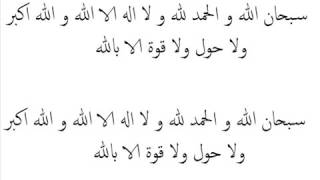 سبحان الله و الحمد لله و لا اله الا الله و الله اكبر
ولا حول ولا قوة الا بالله
سبحان الله و الحمد لله و لا اله الا الله و الله اكبر
ولا حول ولا قوة الا بالله